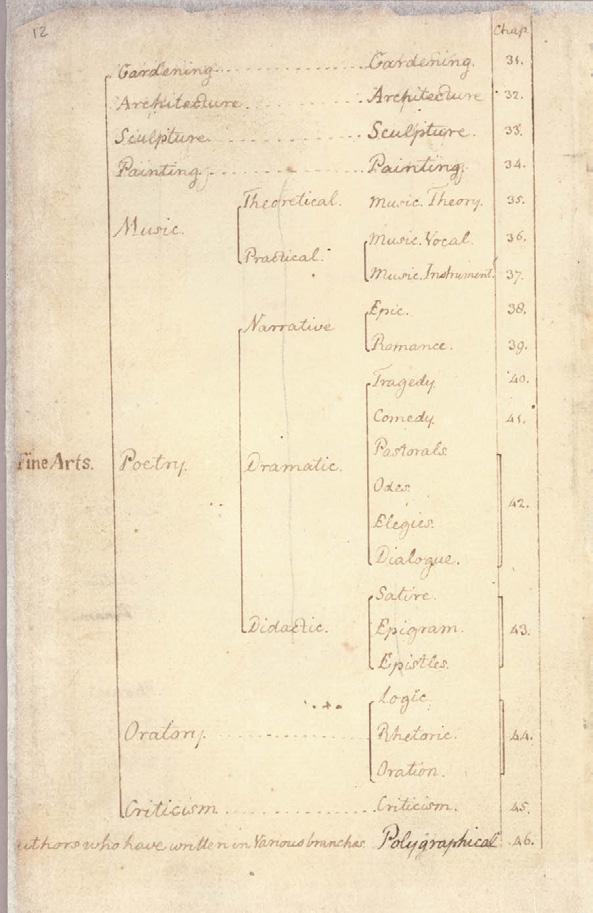 12
Chap.
Gardening . . . . . . . . . . Gardening. 31.
Architecture . . . . . . . . . . Architecture 32.
Sculpture . . . . . . . . . . Sculpture. 33.
Painting . . . . . . . . . . Painting. 34.
Theoretical. Music. Theory. 35.
Music.
Music. Vocal. 36.
Practical.
Music. Instrumentl. 37.
Epic. 38.
Narrative
Romance. 39.
Tragedy 40.
Comedy. 41.
Pastorals
Fine Arts. Poetry. Dramatic.
Odes.
42.
Elegies.
Dialogue.
Satire.
Didactic. Epigram. 43.
Epistles.
Logic.
Oratory. . . . . . . . . . . Rhetoric. 44.
Oration.
Criticism . . . . . . . . . . Criticism. 45.
who have written in Various branches. Polygraphical 46.